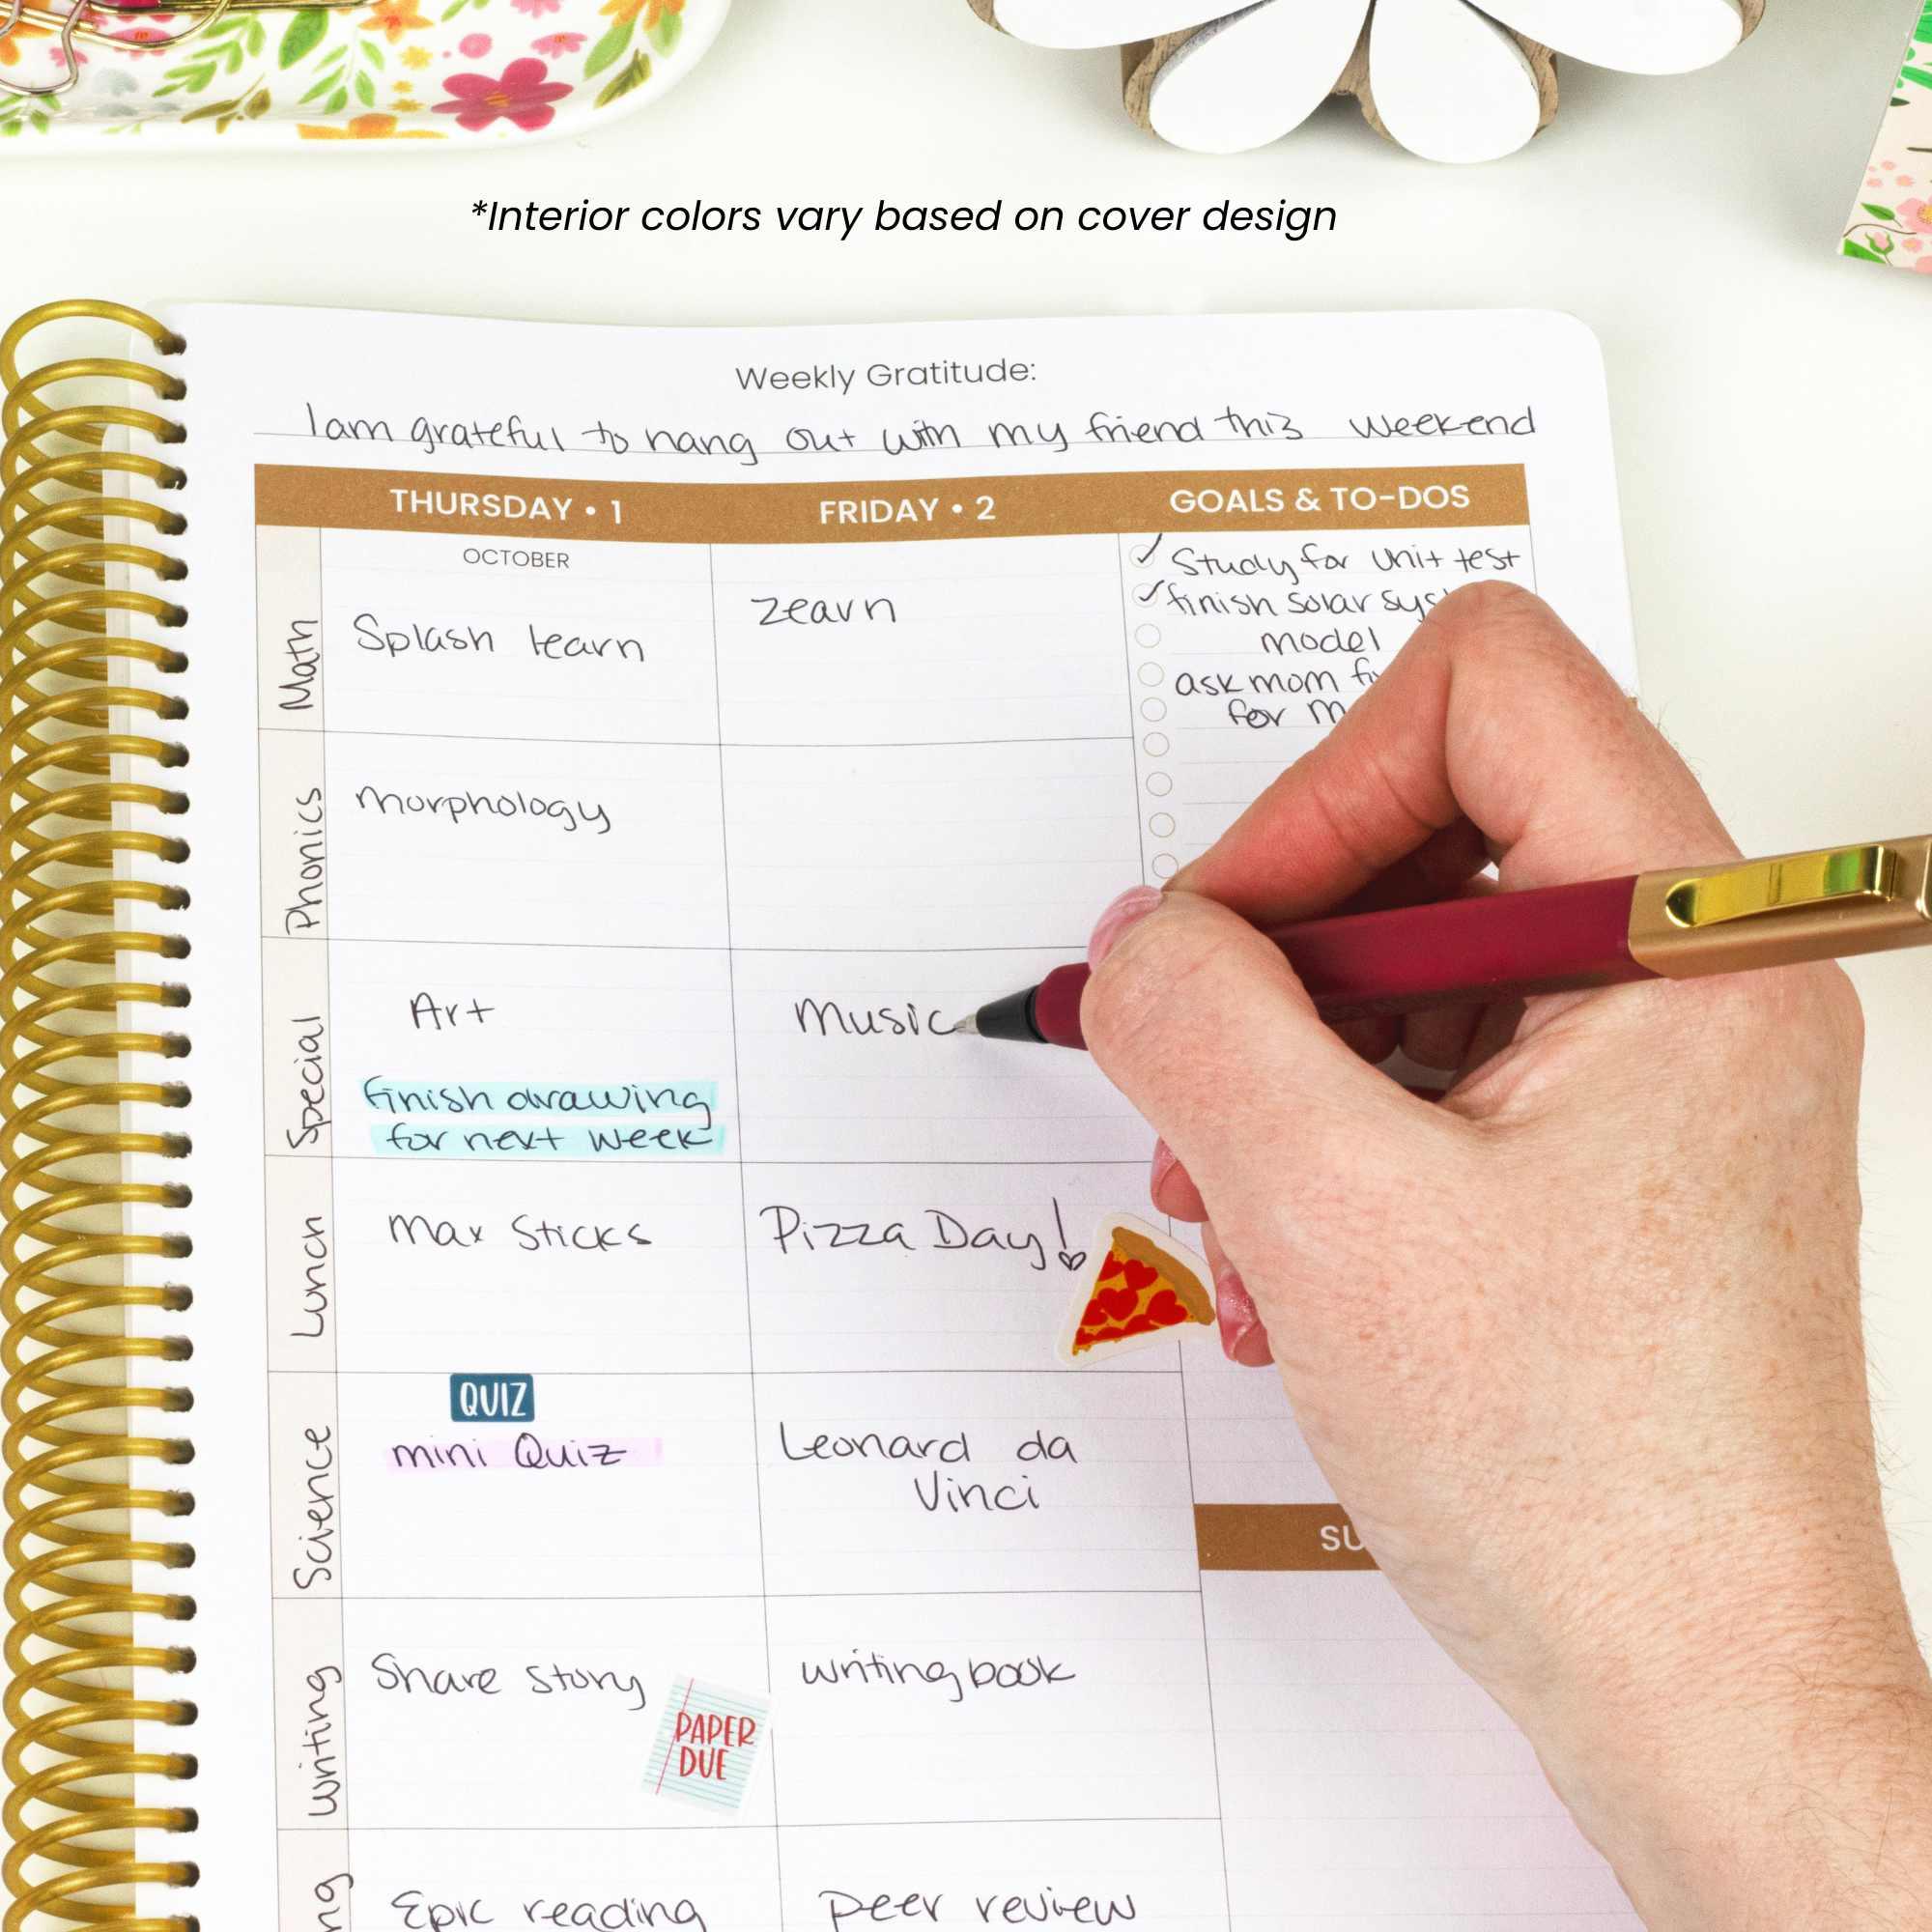 *Interior colors vary based on cover design
Weekly Gratitude:
I am grateful to hang out with my friend this weekend
THURSDAY • 1
FRIDAY • 2
GOALS & TO-DOS
OCTOBER
Math
Splash learn
Zearn
Study for unit test
finish solar
model
ask mom
for
Phonics
morphology
Special
Art
Music
finish drawing
for next week
Lunch
Max Sticks
Pizza Day!
Science
QUIZ
mini Quiz
Leonard da
Vinci
Writing
Share story
writing book
PAPER
DUE
Epic reading
peer review